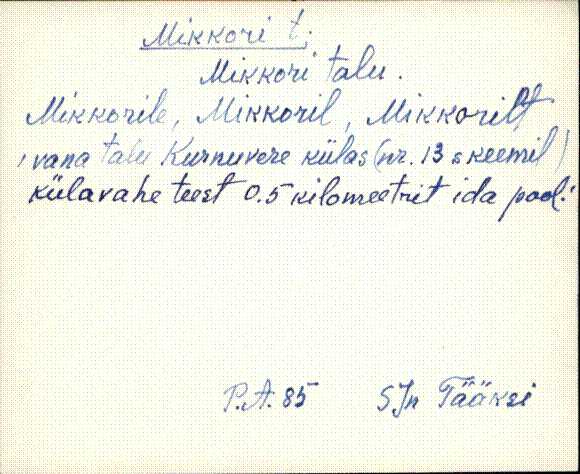 Mikkori t.
Mikkori talu.
Mikkorile, Mikkoril, Mikkorilt
, vana talu Kurnuvere külas (nr. 13 skeemil)
külavahe teest 0.5 kilomeetrit ida pool.
P.A. 85 SJn Tääksi